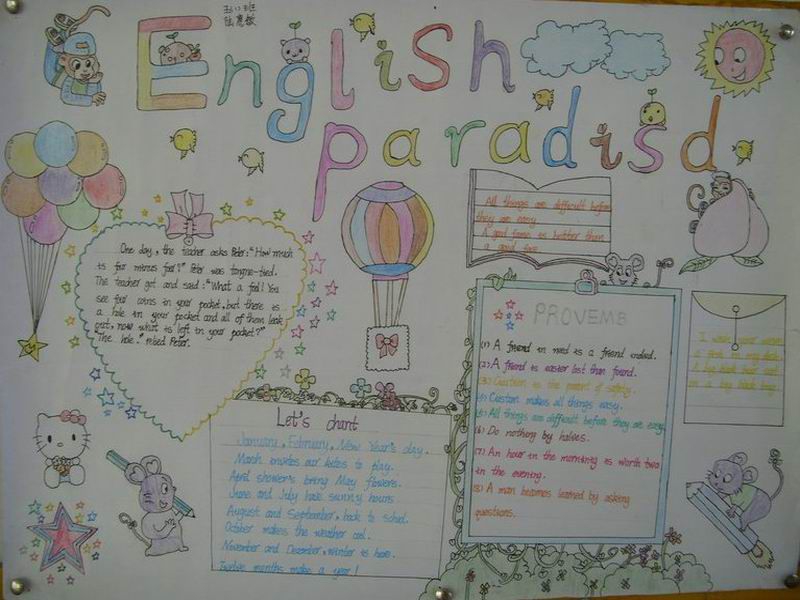 English
paradisd
One day, the teacher asks Peter: "How much
is four minus four?" Peter was tongue-tied.
The teacher got and said: "What a fool! You
see four coins in your pocket, but there is
a hole in your pocket and all of them leak
out, now what is left in your pocket?"
"The hole."  Peter.
All things are difficult before
they are easy
A good fame is better than
a good
PROVEMB
(1) A friend in need is a friend indeed.
(2) A friend is easier lost than found.
is the parent of safety.
Custom makes all things easy.
All things are difficult before they are easy
(6) Do nothing by halves.
(7) An hour in the morning is worth two
in the evening.
(8) A man becomes learned by asking
questions.
Let's chant
January, February, New Year's day.
March invites our kites to play.
April showers bring May flowers.
June and July have sunny hours
August and September, back to school.
October makes the weather cool.
November and December, winter is here.
Twelve months make a year!
I wish your
a fish in my dish
A big black
on a big black